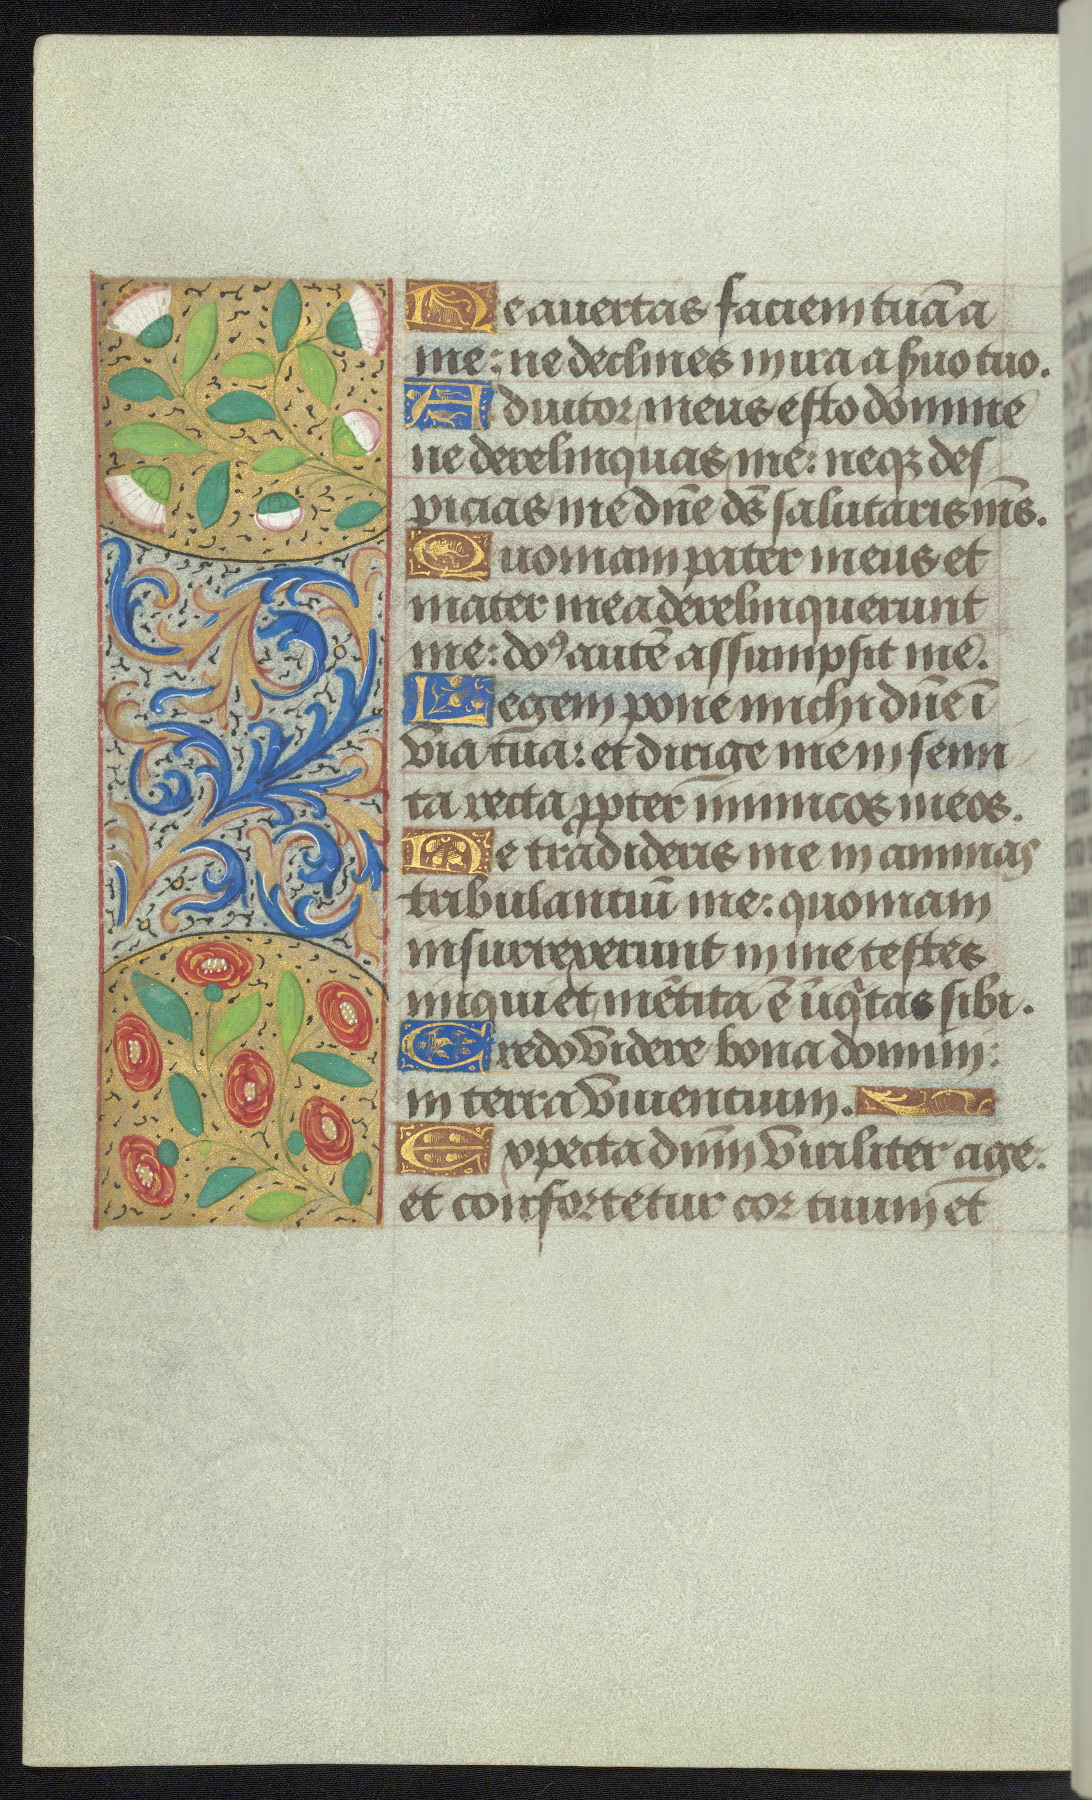 Ne auertas faciem tuā a
me: ne declines in ira a s̄uo tuo.
Adiutor meus esto domine
ne derelinquas me: neqꝫ des
picias me dn̄e ds̄ salutaris ms̄.
Quoniam pater meus et
mater mea derelinquerunt
me: doꝰ autē assumpsit me.
Legem pone michi dn̄e ī
via tua: et dirige me in semi
ta recta ꝓpter inimicos meos.
Ne tradideris me in animas
tribulantiū me: quoniam
insurrexerunt in me testes
iniqui et mētita ē iiq̄tas sibi.
Credo videre bona domini:
in terra viuentium.
Expecta dn̄m viriliter age:
et confortetur cor tuum et